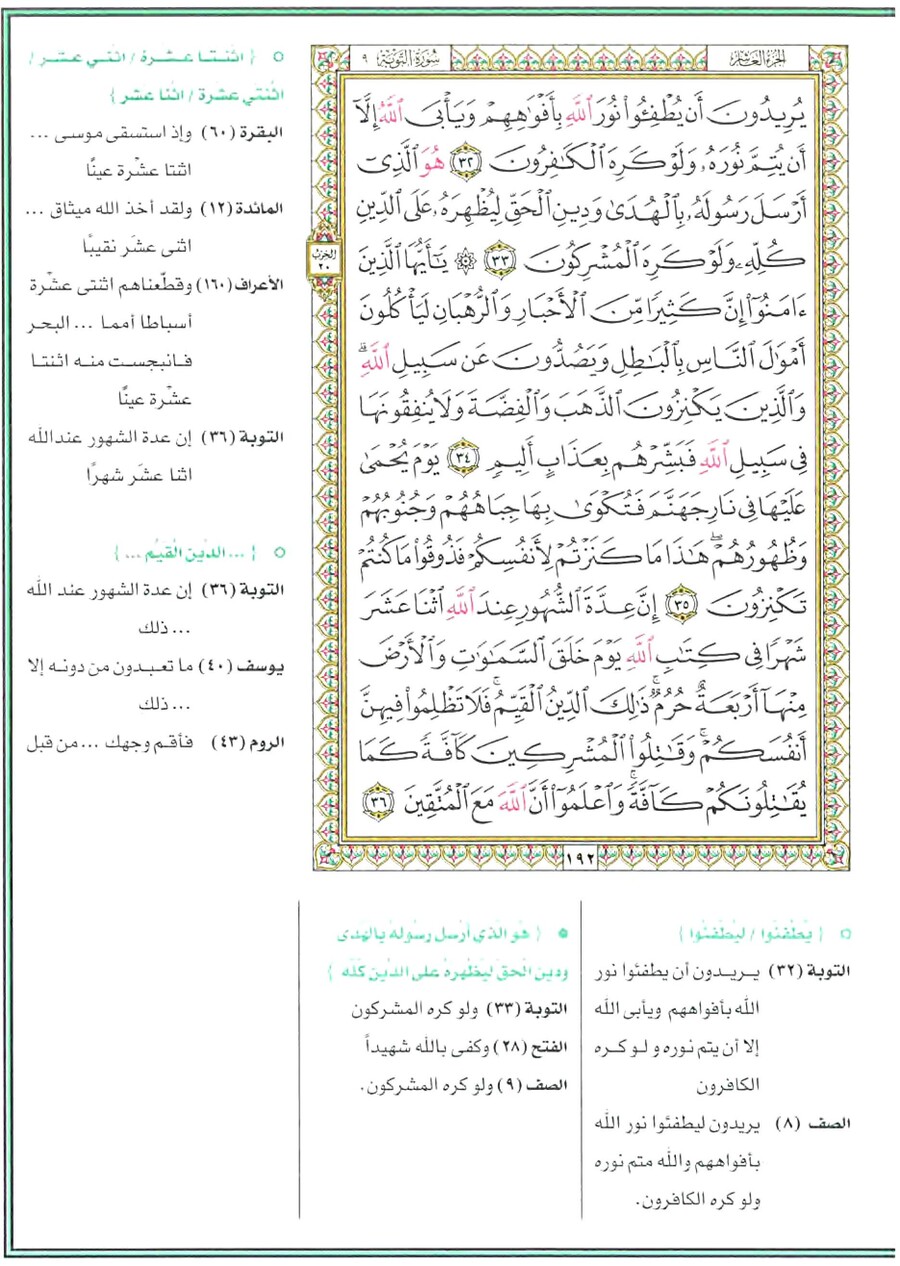 الجزء العاشر
سورة التوبة ٩
يُرِيدُونَ أَن يُطْفِـُٔوا۟ نُورَ ٱللَّهِ بِأَفْوَٰهِهِمْ وَيَأْبَى ٱللَّهُ إِلَّآ
أَن يُتِمَّ نُورَهُۥ وَلَوْ كَرِهَ ٱلْكَٰفِرُونَ ٣٢ هُوَ ٱلَّذِىٓ
أَرْسَلَ رَسُولَهُۥ بِٱلْهُدَىٰ وَدِينِ ٱلْحَقِّ لِيُظْهِرَهُۥ عَلَى ٱلدِّينِ
كُلِّهِۦ وَلَوْ كَرِهَ ٱلْمُشْرِكُونَ ٣٣ ۞ يَٰٓأَيُّهَا ٱلَّذِينَ
ءَامَنُوٓا۟ إِنَّ كَثِيرًا مِّنَ ٱلْأَحْبَارِ وَٱلرُّهْبَانِ لَيَأْكُلُونَ
أَمْوَٰلَ ٱلنَّاسِ بِٱلْبَٰطِلِ وَيَصُدُّونَ عَن سَبِيلِ ٱللَّهِ ۗ
وَٱلَّذِينَ يَكْنِزُونَ ٱلذَّهَبَ وَٱلْفِضَّةَ وَلَا يُنفِقُونَهَا
فِى سَبِيلِ ٱللَّهِ فَبَشِّرْهُم بِعَذَابٍ أَلِيمٍ ٣٤ يَوْمَ يُحْمَىٰ
عَلَيْهَا فِى نَارِ جَهَنَّمَ فَتُكْوَىٰ بِهَا جِبَاهُهُمْ وَجُنُوبُهُمْ
وَظُهُورُهُمْ ۖ هَٰذَا مَا كَنَزْتُمْ لِأَنفُسِكُمْ فَذُوقُوا۟ مَا كُنتُمْ
تَكْنِزُونَ ٣٥ إِنَّ عِدَّةَ ٱلشُّهُورِ عِندَ ٱللَّهِ ٱثْنَا عَشَرَ
شَهْرًا فِى كِتَٰبِ ٱللَّهِ يَوْمَ خَلَقَ ٱلسَّمَٰوَٰتِ وَٱلْأَرْضَ
مِنْهَآ أَرْبَعَةٌ حُرُمٌ ۚ ذَٰلِكَ ٱلدِّينُ ٱلْقَيِّمُ ۚ فَلَا تَظْلِمُوا۟ فِيهِنَّ
أَنفُسَكُمْ ۚ وَقَٰتِلُوا۟ ٱلْمُشْرِكِينَ كَآفَّةً كَمَا
يُقَٰتِلُونَكُمْ كَآفَّةً ۚ وَٱعْلَمُوٓا۟ أَنَّ ٱللَّهَ مَعَ ٱلْمُتَّقِينَ ٣٦
١٩٢
الحزب
٢٠
{ اثنتا عشرة / اثني عشر /
اثنتي عشرة / اثنا عشر }
البقرة (٦٠) وإذ استسقى موسى ...
اثنتا عشْرة عينًا
المائدة (١٢) ولقد أخذ الله ميثاق ...
اثنى عشَر نقيبًا
الأعراف (١٦٠) وقطّعناهم اثنتى عشْرة
أسباطا أمما ... البحر
فانبجست منه اثنتا
عشْرة عينًا
التوبة (٣٦) إن عدة الشهور عندالله
اثنا عشَر شهرًا
{ ... الدِّين الْقَيِّم ... }
التوبة (٣٦) إن عدة الشهور عند الله
... ذلك
يوسف (٤٠) ما تعبدون من دونه إلا
... ذلك
الروم (٤٣) فأقم وجهك ... من قبل
{ يُطْفِئُوا / لِيُطْفِئُوا }
التوبة (٣٢) يريدون أن يطفئوا نور
الله بأفواههم ويأبى الله
إلا أن يتم نوره ولو كره
الكافرون
الصف (٨) يريدون ليطفئوا نور الله
بأفواههم والله متم نوره
ولو كره الكافرون.
{ هُوَ الَّذي أَرْسل رسوله بالهدى
ودين الْحقّ ليُظْهره على الدّين كلّه }
التوبة (٣٣) ولو كره المشركون
الفتح (٢٨) وكفى بالله شهيداً
الصف (٩) ولو كره المشركون.